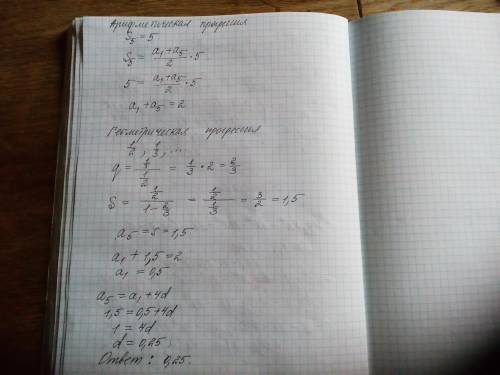 Арифметическая прогрессия
S₅ = 5
S₅ = (a₁+a₅)/2 · 5
5 = (a₁+a₅)/2 · 5
a₁ + a₅ = 2
Геометрическая прогрессия
1/2, 1/3, ...
q = (1/3)/(1/2) = 1/3 · 2 = 2/3
S = (1/2)/(1 - 2/3) = (1/2)/(1/3) = 3/2 = 1,5
a₅ = S = 1,5
a₁ + 1,5 = 2
a₁ = 0,5
a₅ = a₁ + 4d
1,5 = 0,5 + 4d
1 = 4d
d = 0,25
Ответ: 0,25.